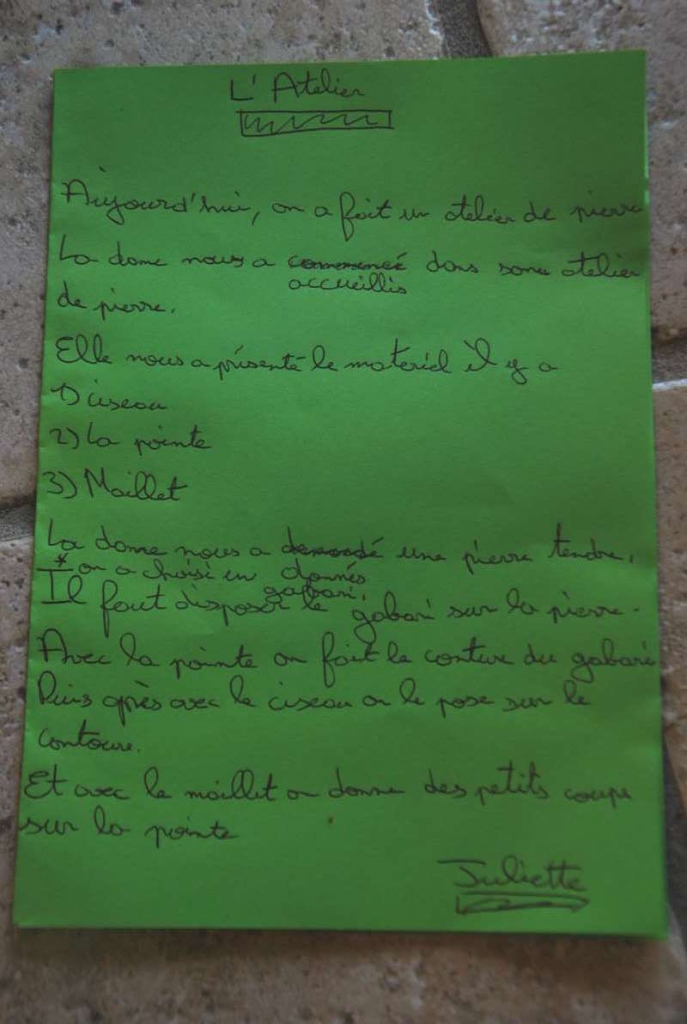 L'Atelier
Aujourd'hui, on a fait un atelier de pierre
La dame nous a commencé dans some atelier
accueillis
de pierre.
Elle nous a présenté le materiel il y a
1) ciseau
2) La pointe
3) Maillet
La dame nous a demandé une pierre tendre.
* on a choisi un donnés
gabari.
Il faut disposer le gabari sur la pierre.
Avec la pointe on fait le conture du gabari
Puis après avec le ciseau on le pose sur le
contoure.
Et avec le maillet on donne des petits coups
sur la pointe
Juliette